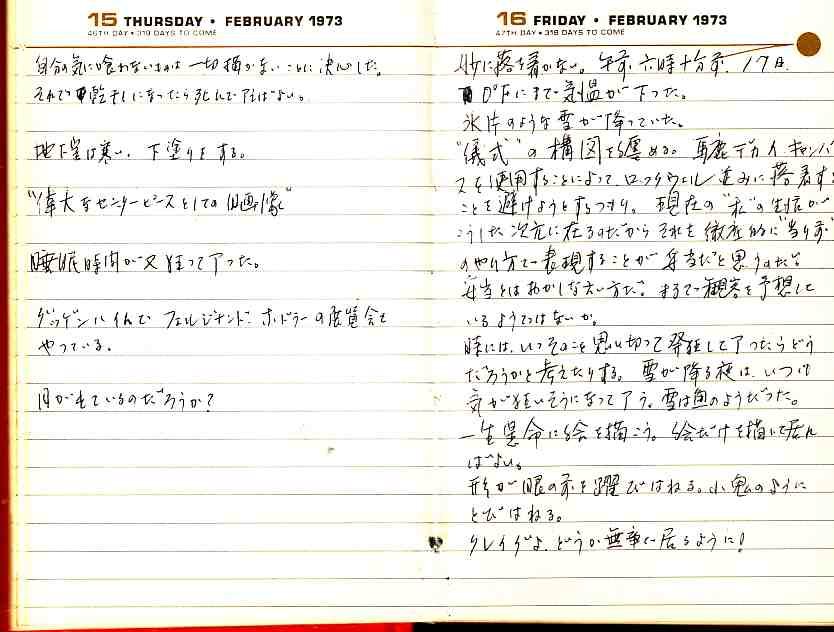 15 THURSDAY • FEBRUARY 1973
46TH DAY • 319 DAYS TO COME
自分の気に喰わないものは一切描かないことに決心した。
それで乾干しになったら死んで仕えばよい。
地下室は寒い、下塗りをする。
"偉大なセンターピースとしての自画像"
睡眠時間が又狂って了った。
グッゲンハイムで フェルジナンド・ホドラーの展覧会を
やっている。
月が出ているのだろうか?
16 FRIDAY • FEBRUARY 1973
47TH DAY • 318 DAYS TO COME
妙に落ち着かない。午前六時十分前、17日。
0°Fにまで気温が下った。
氷片のような雪が降っていた。
"儀式"の構図を纏める。馬鹿デカイキャンバ
スを使用することによって、ロックウェル並みに落着する
ことを避けようとするつもり。現在の"私"の生活が
こうした次元に在るのだから それを徹底的に"当り前"
のやり方で表現することが 妥当だと思うのだ。
妥当とはおかしな云い方だ。まるで観客を予想して
いるようではないか。
時には、いっそのこと思い切って発狂して了ったらどう
だろうかと考えたりする。雪が降る夜は、いつも
気が狂いそうになって了う。雪は魚のようだった。
一生懸命に絵を描こう。絵だけを描いて居れ
ばよい。
形が眼の前を躍びはねる。小鬼のように
とびはねる。
クレイグよ、どうか無事で居るように!